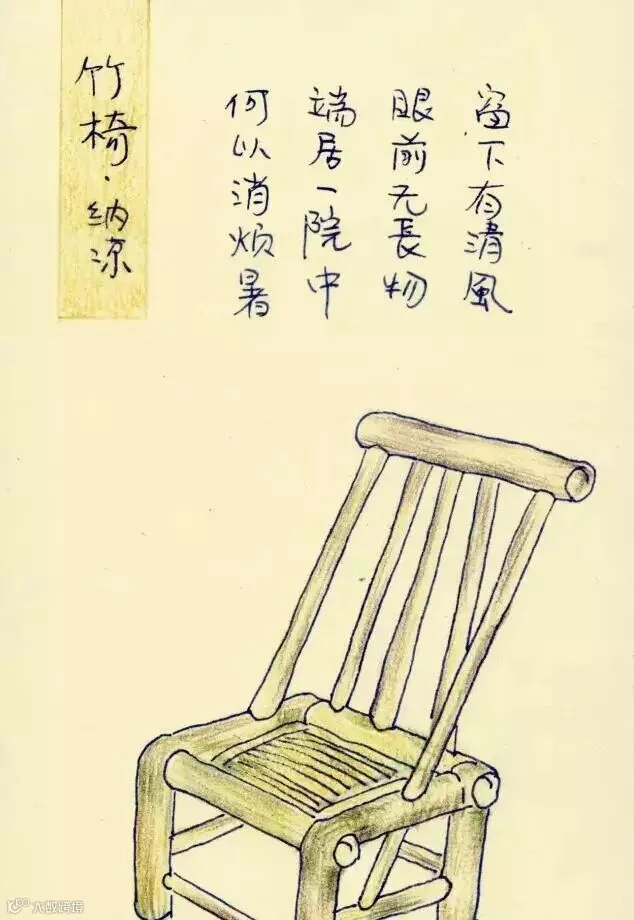 竹椅·纳凉
何以消烦暑
端居一院中
眼前无長物
窗下有清風
大数跨境